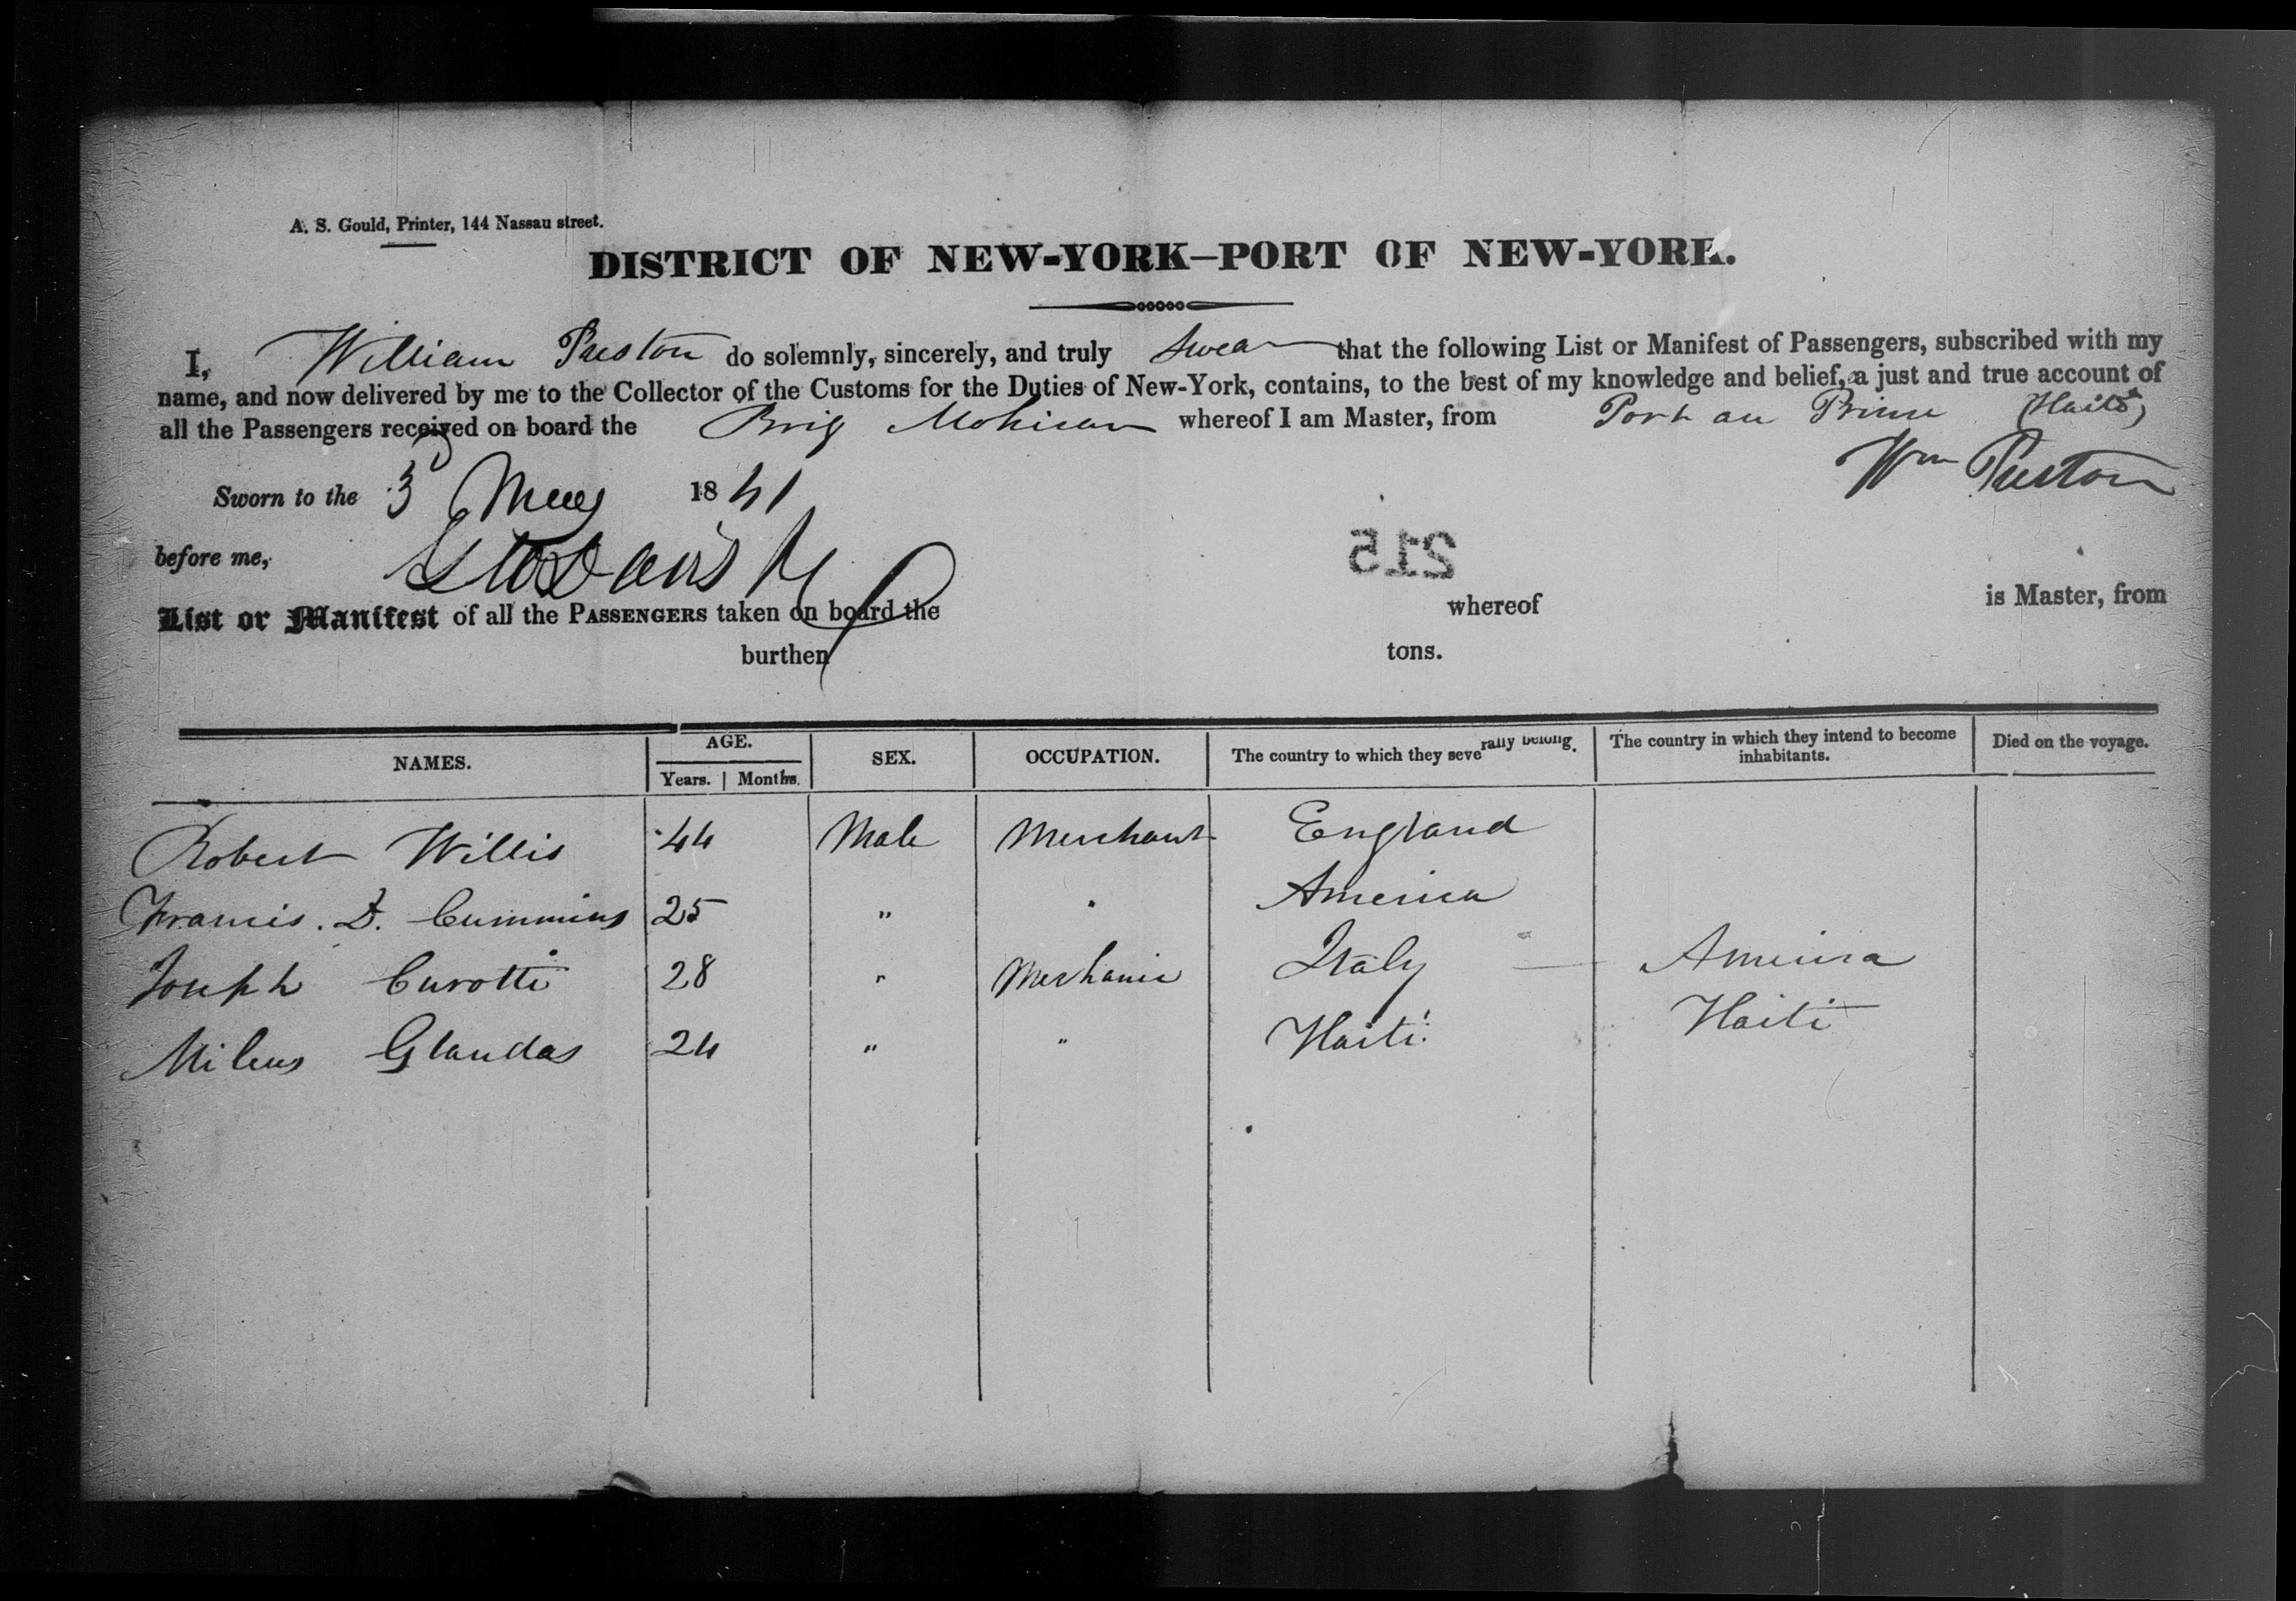 A. S. Gould, Printer, 144 Nassau street.
DISTRICT OF NEW-YORK—PORT OF NEW-YORK.
I, William Preston do solemnly, sincerely, and truly swear that the following List or Manifest of Passengers, subscribed with my
name, and now delivered by me to the Collector of the Customs for the Duties of New-York, contains, to the best of my knowledge and belief, a just and true account of
all the Passengers received on board the Brig Mohican whereof I am Master, from Port au Prince (Haiti)
Wm Preston
Sworn to the 3 May 1841
before me,
215
List or Manifest of all the PASSENGERS taken on board the whereof is Master, from
burthen tons.
NAMES. AGE. Years. | Months. SEX. OCCUPATION. The country to which they severally belong. The country in which they intend to become inhabitants. Died on the voyage.
Robert Willis 44 Male Merchant England
Francis. D. Cummins 25 " " America
Joseph Curotti 28 " Mechanic Italy — America
Milcus Glandas 24 " " Haiti Haiti